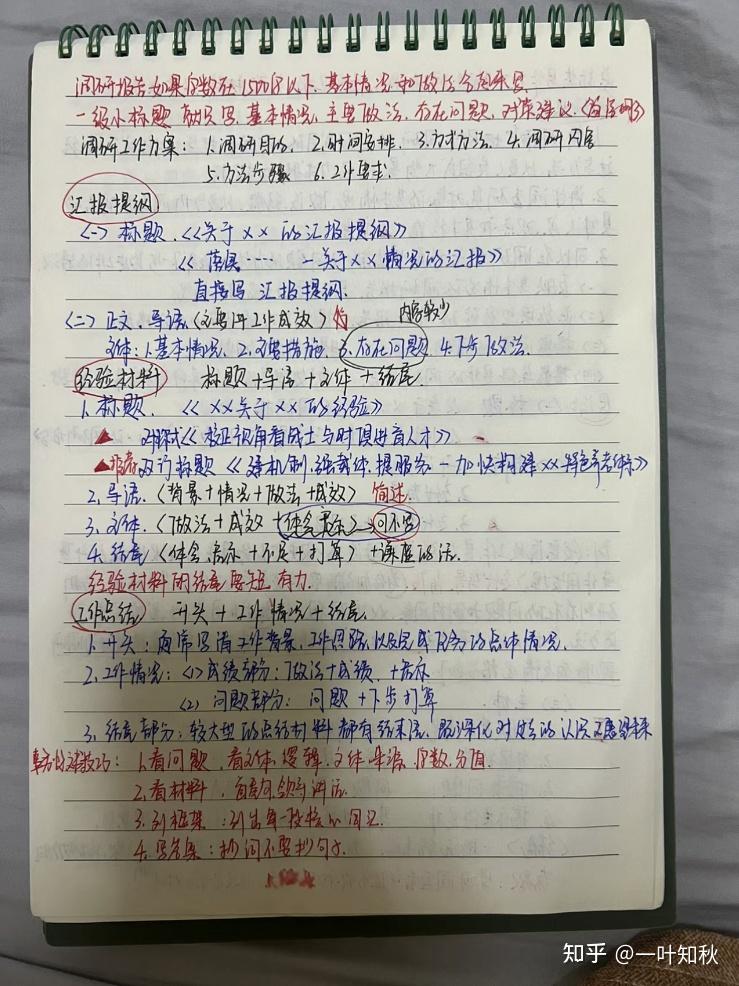 调研报告如果字数在1500字以下,基本情况和做法合起来写
一级小标题都只写,基本情况,主要做法,存在问题,对策建议
调研工作方案:1.调研目的、2.时间安排、3.方式方法、4.调研内容
5.方法步骤 6.工作要求.
汇报提纲
<一>标题.<<关于××的汇报提纲>>
<<落实…… —关于××情况的汇报>>
直接写 汇报提纲.
<二>正文.导语<主要讲工作成效>内容较少
文体:1.基本情况、2.主要措施、3.存在问题 4.下步做法.
经验材料 标题+导语+文体+结尾.
1.标题. <<××关于××的经验>>
▲
▲推荐双行标题<<建机制,强载体,提服务—加快构建××特色养老体系>>
2.导语.<背景+情况+做法+成效>简述.
3.文体.<做法+成效+体会启示>→问不写
4.结尾<体会、启示+不足+打算>+谦虚的话.
经验材料的结尾要短,有力.
工作总结 开头+工作情况+结尾.
1.开头:通常写清工作背景,工作思路,以及完成任务的总体情况.
2.工作情况:<1>成绩部分:做法+成绩,+启示
<2>问题部分:问题+下步打算
3.结尾部分:较大型的总结材料都有结束语,
1.看问题,看文体,逻辑,文体,来源,字数,分值.
2.看材料,
3.列框架:列出每一段核心词汇.
4.写答案:抄词不要抄句子.
知乎 @一叶知秋